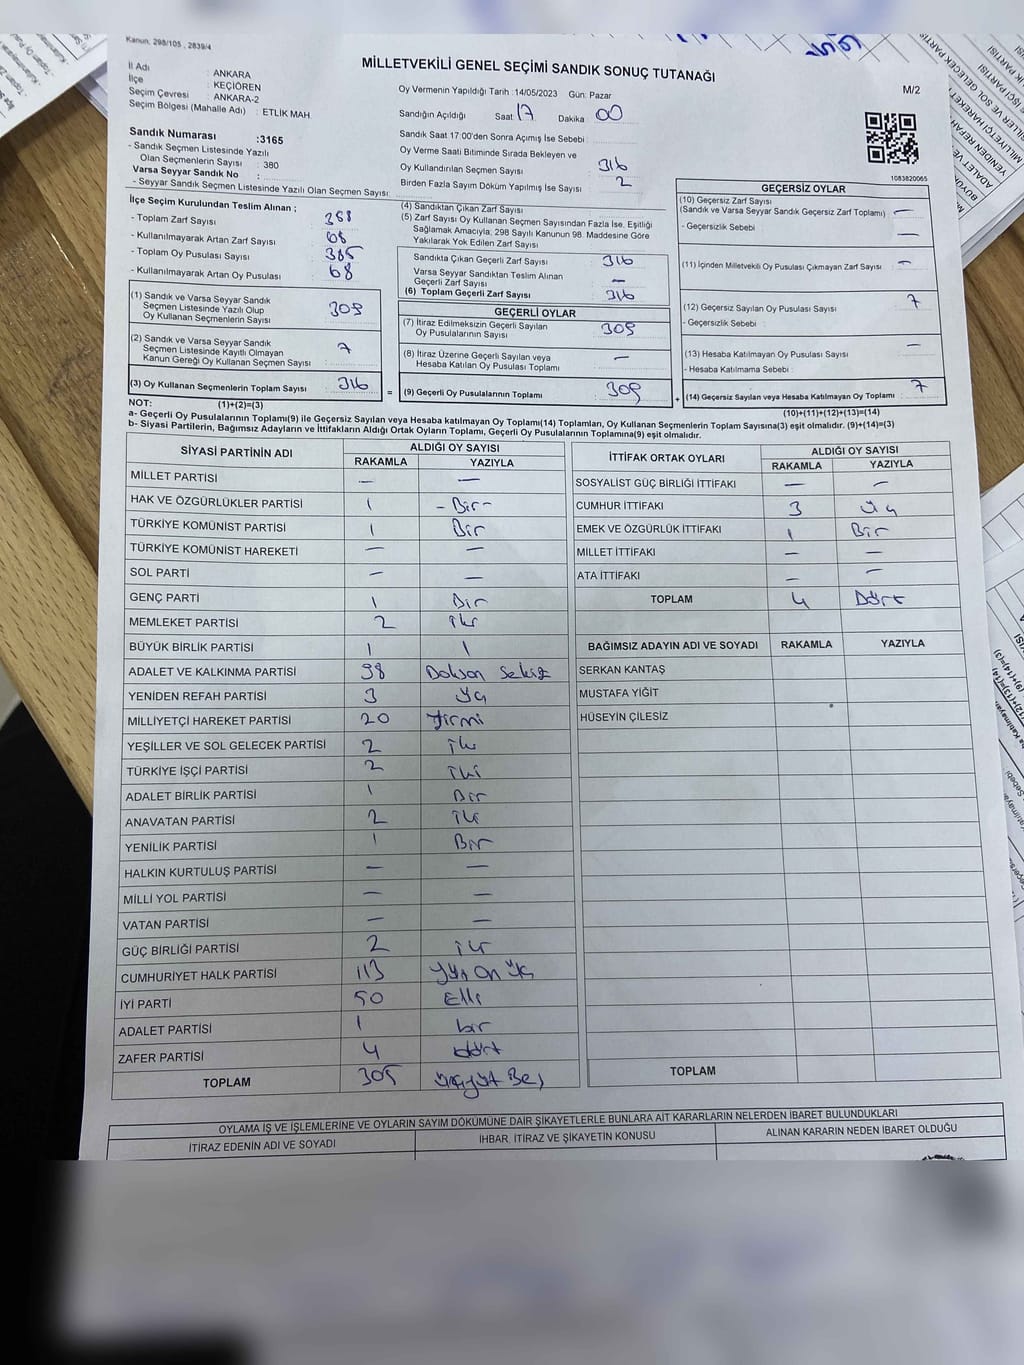 Kanun. 298/105 , 2839/4
MİLLETVEKİLİ GENEL SEÇİMİ SANDIK SONUÇ TUTANAĞI
M/2
İl Adı : ANKARA
İlçe : KEÇİÖREN
Seçim Çevresi : ANKARA-2
Seçim Bölgesi (Mahalle Adı) : ETLİK MAH.
Oy Vermenin Yapıldığı Tarih :14/05/2023 Gün: Pazar
Sandığın Açıldığı Saat: 17 Dakika 00
Sandık Saat 17:00'den Sonra Açımış İse Sebebi :
Oy Verme Saati Bitiminde Sırada Bekleyen ve
Oy Kullandırılan Seçmen Sayısı 316
Birden Fazla Sayım Döküm Yapılmış İse Sayısı : 2
Sandık Numarası :3165
- Sandık Seçmen Listesinde Yazılı
Olan Seçmenlerin Sayısı : 380
Varsa Seyyar Sandık No :
- Seyyar Sandık Seçmen Listesinde Yazılı Olan Seçmen Sayısı:
1083820065
İlçe Seçim Kurulundan Teslim Alınan ;
- Toplam Zarf Sayısı :
- Kullanılmayarak Artan Zarf Sayısı : 68
- Toplam Oy Pusulası Sayısı : 385
- Kullanılmayarak Artan Oy Pusulası : 68
(1) Sandık ve Varsa Seyyar Sandık
Seçmen Listesinde Yazılı Olup
Oy Kullanan Seçmenlerin Sayısı : 309
(2) Sandık ve Varsa Seyyar Sandık
Seçmen Listesinde Kayıtlı Olmayan
Kanun Gereği Oy Kullanan Seçmen Sayısı : 7
(3) Oy Kullanan Seçmenlerin Toplam Sayısı 316
=
(4) Sandıktan Çıkan Zarf Sayısı
(5) Zarf Sayısı Oy Kullanan Seçmen Sayısından Fazla İse, Eşitliği
Sağlamak Amacıyla, 298 Sayılı Kanunun 98. Maddesine Göre
Yakılarak Yok Edilen Zarf Sayısı
Sandıkta Çıkan Geçerli Zarf Sayısı : 316
Varsa Seyyar Sandıktan Teslim Alınan
Geçerli Zarf Sayısı : —
(6) Toplam Geçerli Zarf Sayısı : 316
GEÇERLİ OYLAR
(7) İtiraz Edilmeksizin Geçerli Sayılan
Oy Pusulalarının Sayısı : 309
(8) İtiraz Üzerine Geçerli Sayılan veya
Hesaba Katılan Oy Pusulası Toplamı : —
(9) Geçerli Oy Pusulalarının Toplamı 309
+
GEÇERSİZ OYLAR
(10) Geçersiz Zarf Sayısı
(Sandık ve Varsa Seyyar Sandık Geçersiz Zarf Toplamı) : —
- Geçersizlik Sebebi : —
(11) İçinden Milletvekili Oy Pusulası Çıkmayan Zarf Sayısı : —
(12) Geçersiz Sayılan Oy Pusulası Sayısı : 7
- Geçersizlik Sebebi :
(13) Hesaba Katılmayan Oy Pusulası Sayısı : —
- Hesaba Katılmama Sebebi :
(14) Geçersiz Sayılan veya Hesaba Katılmayan Oy Toplamı : 7
NOT: (1)+(2)=(3) (10)+(11)+(12)+(13)=(14)
a- Geçerli Oy Pusulalarının Toplamı(9) ile Geçersiz Sayılan veya Hesaba katılmayan Oy Toplamı(14) Toplamları, Oy Kullanan Seçmenlerin Toplam Sayısına(3) eşit olmalıdır. (9)+(14)=(3)
b- Siyasi Partilerin, Bağımsız Adayların ve İttifakların Aldığı Ortak Oyların Toplamı, Geçerli Oy Pusulalarının Toplamına(9) eşit olmalıdır.
SİYASİ PARTİNİN ADI ALDIĞI OY SAYISI
RAKAMLA YAZIYLA
MİLLET PARTİSİ — —
HAK VE ÖZGÜRLÜKLER PARTİSİ 1 - Bir -
TÜRKİYE KOMÜNİST PARTİSİ 1 Bir
TÜRKİYE KOMÜNİST HAREKETİ — —
SOL PARTİ — —
GENÇ PARTİ 1 Bir
MEMLEKET PARTİSİ 2 iki
BÜYÜK BİRLİK PARTİSİ 1 1
ADALET VE KALKINMA PARTİSİ 98 Doksan Sekiz
YENİDEN REFAH PARTİSİ 3 Üç
MİLLİYETÇİ HAREKET PARTİSİ 20 Yirmi
YEŞİLLER VE SOL GELECEK PARTİSİ 2 iki
TÜRKİYE İŞÇİ PARTİSİ 2 iki
ADALET BİRLİK PARTİSİ 1 Bir
ANAVATAN PARTİSİ 2 iki
YENİLİK PARTİSİ 1 Bir
HALKIN KURTULUŞ PARTİSİ — —
MİLLİ YOL PARTİSİ — —
VATAN PARTİSİ — —
GÜÇ BİRLİĞİ PARTİSİ 2 iki
CUMHURİYET HALK PARTİSİ 113 Yüz On Üç
İYİ PARTİ 50 Elli
ADALET PARTİSİ 1 bir
ZAFER PARTİSİ 4 dört
TOPLAM 305 üçyüz Beş
İTTİFAK ORTAK OYLARI ALDIĞI OY SAYISI
RAKAMLA YAZIYLA
SOSYALİST GÜÇ BİRLİĞİ İTTİFAKI — —
CUMHUR İTTİFAKI 3 Üç
EMEK VE ÖZGÜRLÜK İTTİFAKI 1 Bir
MİLLET İTTİFAKI — —
ATA İTTİFAKI — —
TOPLAM 4 Dört
BAĞIMSIZ ADAYIN ADI VE SOYADI RAKAMLA YAZIYLA
SERKAN KANTAŞ
MUSTAFA YİĞİT
HÜSEYİN ÇİLESİZ
TOPLAM
OYLAMA İŞ VE İŞLEMLERİNE VE OYLARIN SAYIM DÖKÜMÜNE DAİR ŞİKAYETLERLE BUNLARA AİT KARARLARIN NELERDEN İBARET BULUNDUKLARI
İTİRAZ EDENİN ADI VE SOYADI İHBAR, İTİRAZ VE ŞİKAYETİN KONUSU ALINAN KARARIN NEDEN İBARET OLDUĞU